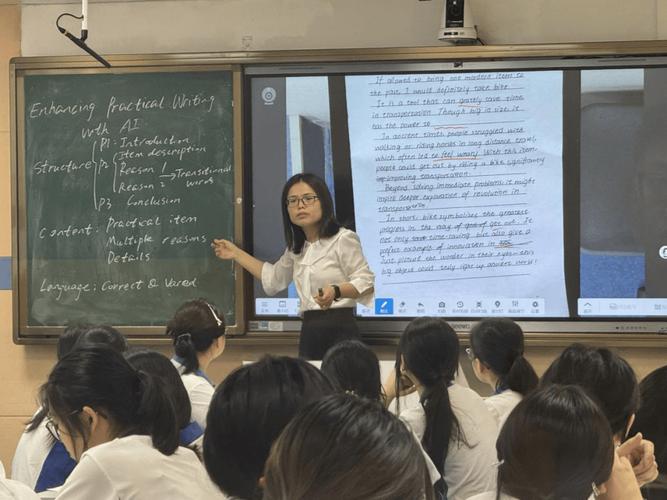 Enhancing Practical Writing
with AI
Structure
P1: Introduction
P2
Item description
Reason 1
Reason 2
Transitional
words
P3 Conclusion
Content: Practical item
Multiple reasons
Details
Language: Correct & Varied
If allowed to bring one modern item to
the past, I would definitely take bike.
It is a tool that can greatly save time
in transportation. Though big in size, it
has the power to
In ancient times, people struggled with
walking or riding horses in long distance travel,
which often led to feel weary. With this item,
people could get out by riding a bike, significantly
improving transportation.
Beyond solving immediate problems, it might
inspire deeper exploration of revolution in
transportation.
In short, bike symbolizes the greatest
progress in the way of
not only time-saving but also give a
perfect example of innovation in
Just picture the wonder in their eyes
big object could truly light up ancient world!